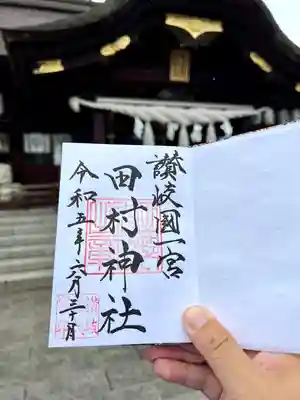 讃岐國一宮
田村神社
令和五年六月三十日